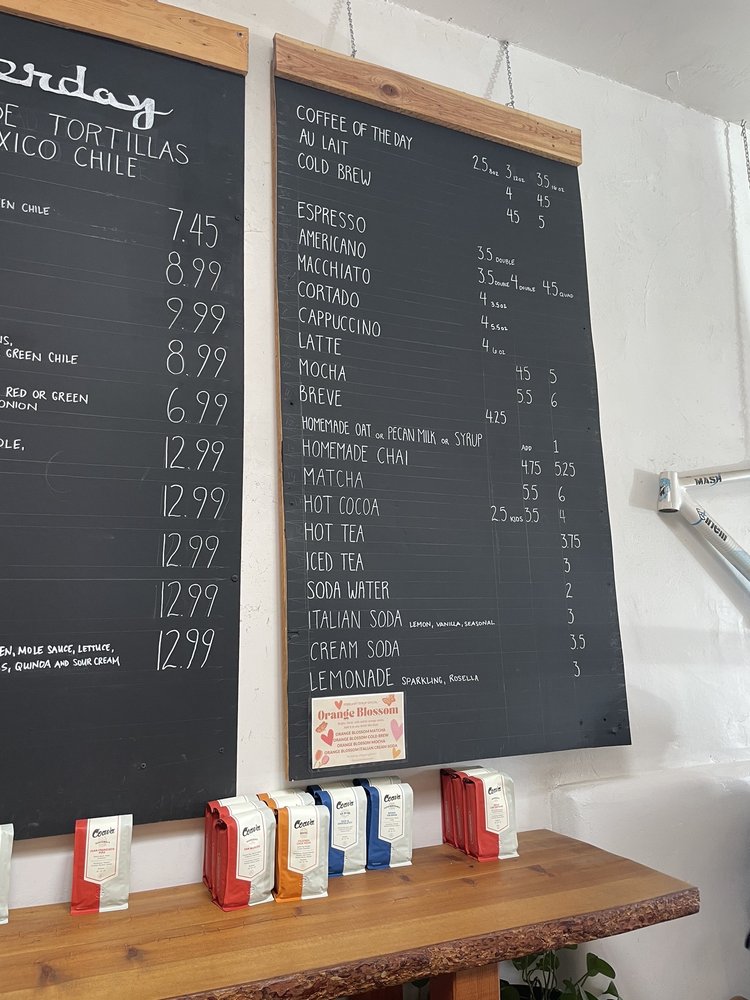 erday
DE TORTILLAS
XICO CHILE
EN CHILE 7.45
8.99
9.99
GREEN CHILE 8.99
RED OR GREEN
ONION 6.99
12.99
12.99
12.99
12.99
EN, MOLE SAUCE, LETTUCE,
S, QUINOA AND SOUR CREAM 12.99
COFFEE OF THE DAY 2.5 8oz 3 12oz 3.5 16oz
AU LAIT 4 4.5
COLD BREW 4.5 5
ESPRESSO 3.5 DOUBLE
AMERICANO 3.5 DOUBLE 4 DOUBLE 4.5 QUAD
MACCHIATO 4 3.5oz
CORTADO 4 5.5oz
CAPPUCCINO 4 6oz
LATTE 4.5 5
MOCHA 5.5 6
BREVE 4.25
HOMEMADE OAT OR PECAN MILK OR SYRUP ADD 1
HOMEMADE CHAI 4.75 5.25
MATCHA 5.5 6
HOT COCOA 2.5 KIDS 3.5 4
HOT TEA 3.75
ICED TEA 3
SODA WATER 2
ITALIAN SODA LEMON, VANILLA, SEASONAL 3
CREAM SODA 3.5
LEMONADE SPARKLING, ROSELLA 3
Orange Blossom
ORANGE BLOSSOM MATCHA
ORANGE BLOSSOM COLD BREW
ORANGE BLOSSOM MOCHA
ORANGE BLOSSOM ITALIAN CREAM SODA
MASH
Cinelli
Coava
Coava
Coava
Coava
Coava